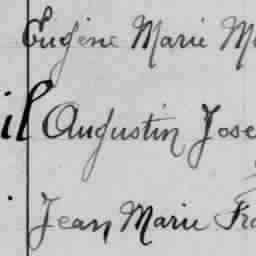 Eugène Marie
il Augustin Jose
Jean Marie Fra